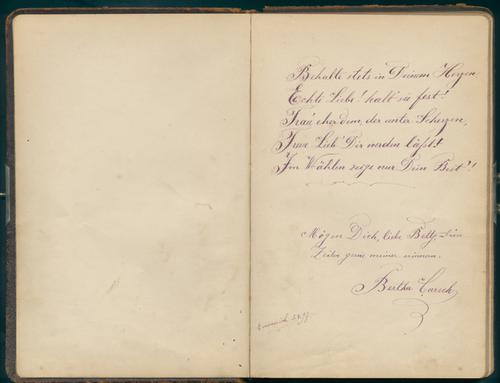 Behalte stets in Deinem Herzen
Echte Liebe! halt' sie fest!
Trau' eher dem, der unter Scherzen,
Treue Lieb' Dir werden läßt!
Im Wählen zeige nur Dein Best'!!
Mögen Dich, liebe Betty, diese
Zeilen gerne meiner erinnern.
Bertha